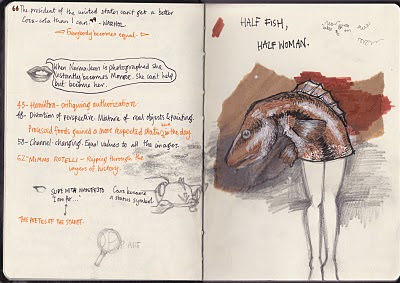 "The president of the united states can't get a better
Coca-cola than I can" - WARHOL
Everybody becomes equal
When Norma Jean is photographed she
instantly becomes Monroe. She can't help
but become her.
- Hamilton - critiquing authorization.
Distortion of perspective. Mixture of real objects & painting.
Processed foods gained a more respected status back in the day.
58 - Channel-changing. Equal values to all the images.
62 - MIMMO ROTELLI - Ripping through the
layers of history.
MANIFESTO
I am for..."
Cars became
a status symbol.
THE POETICS OF THE STREET.
ART
HALF FISH,
HALF WOMAN.